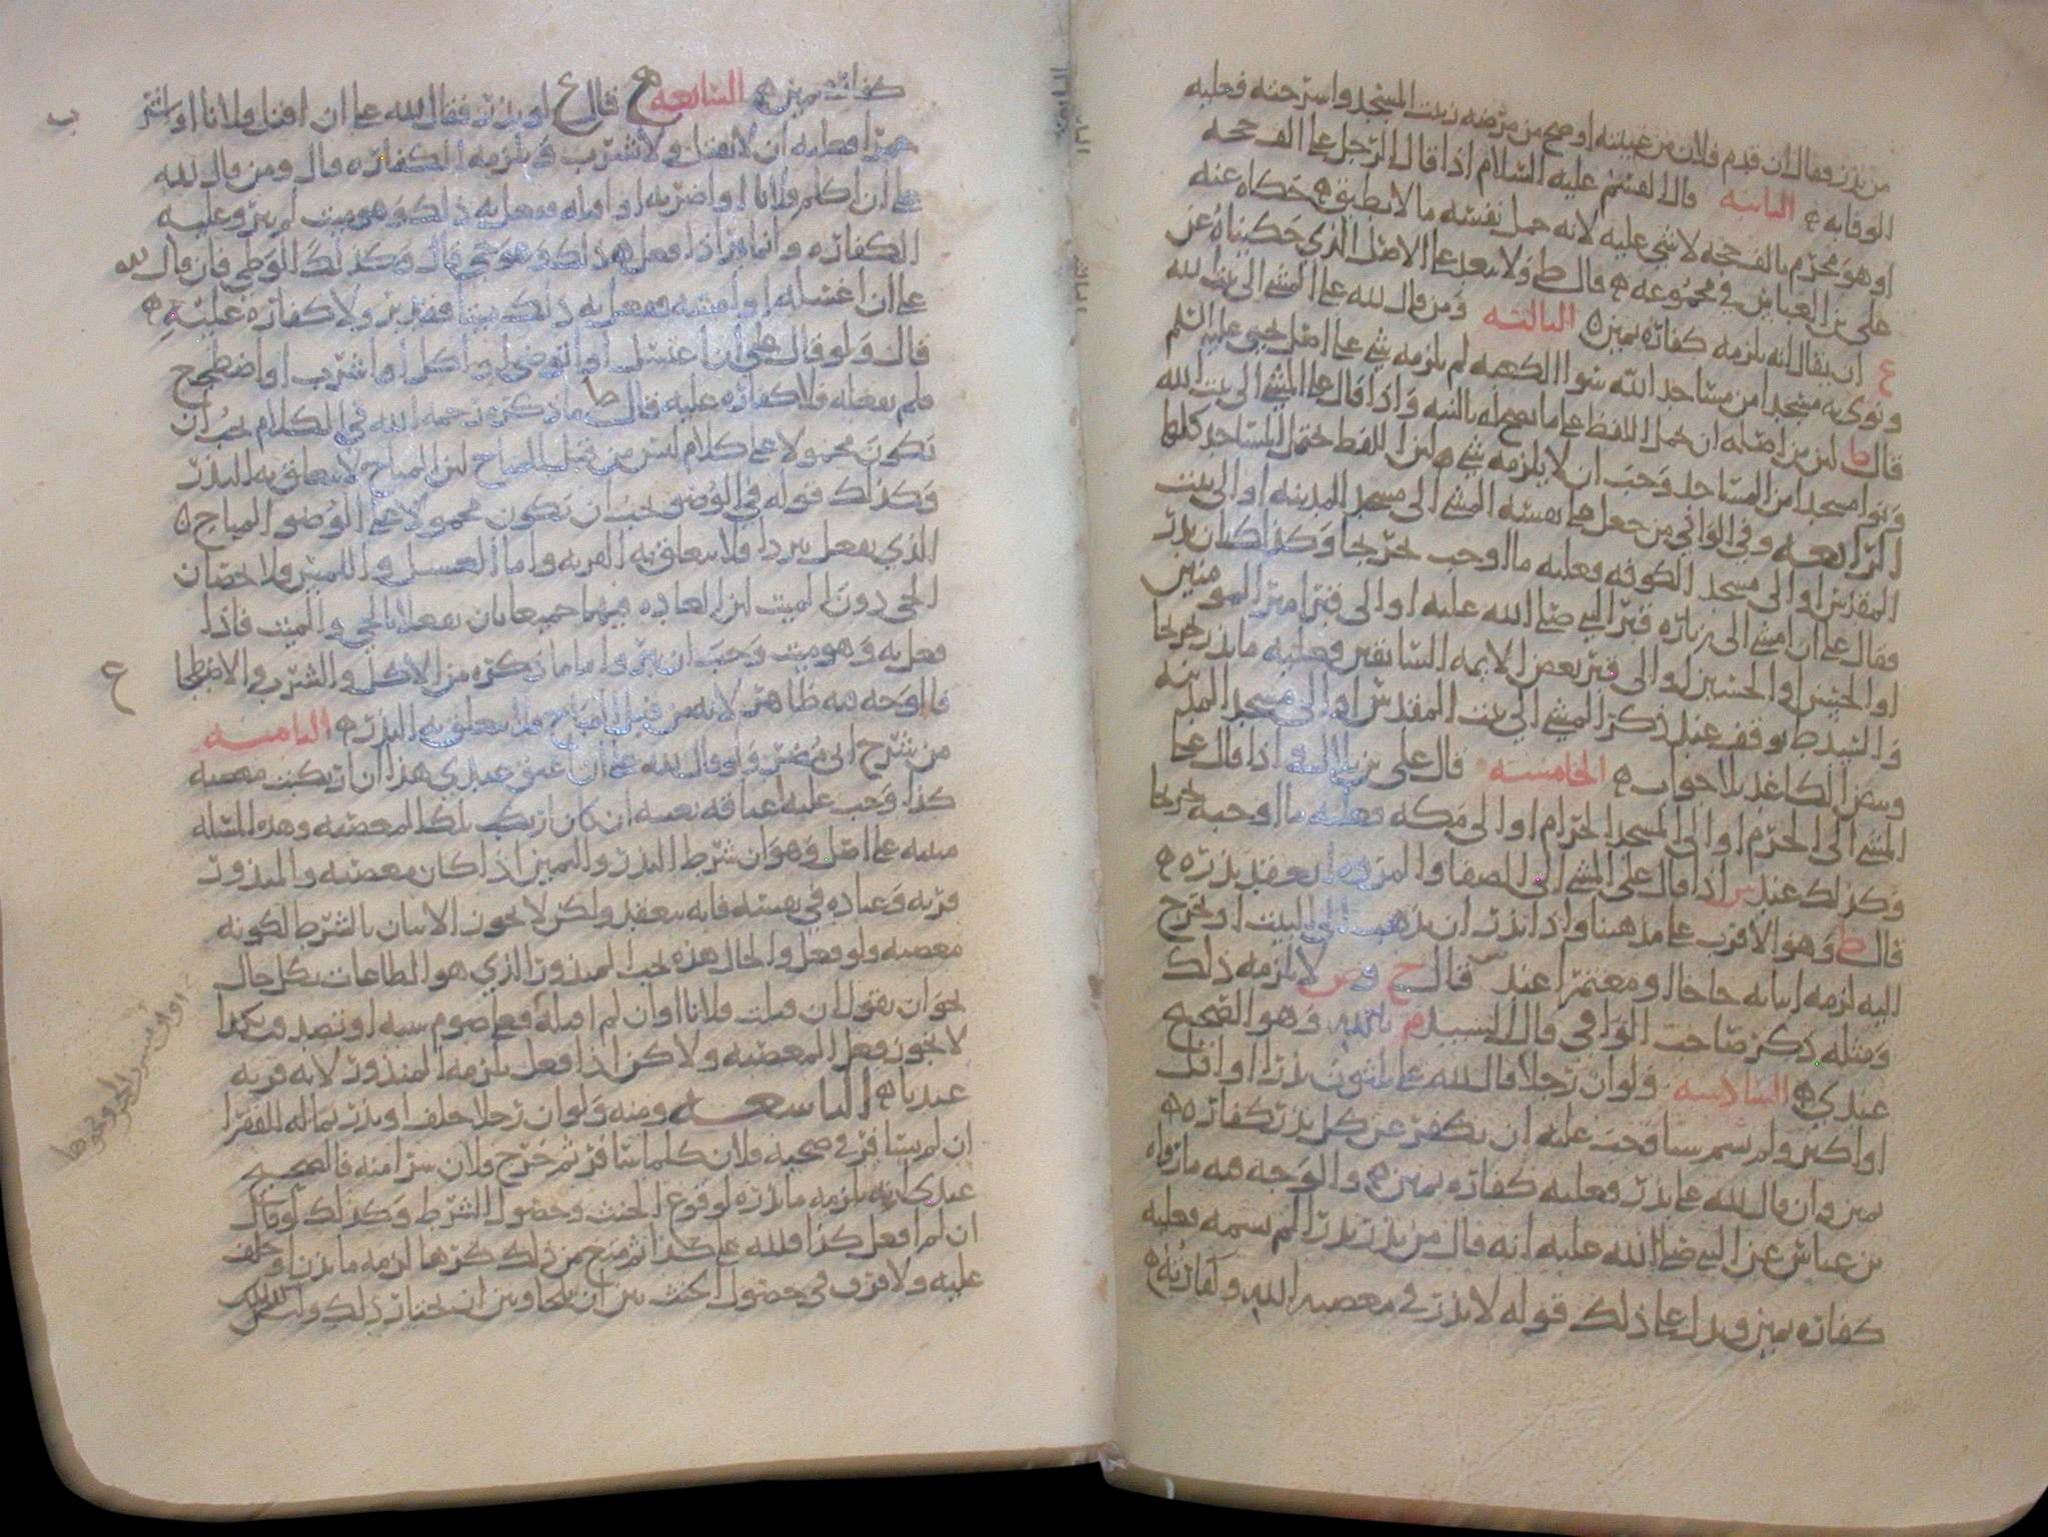 من نذر فقال ان قدم فلان من غيبته او صح من مرضه زيت المسجد واسرجته فعليه
الوفا به الثانيه قال القسم عليه السلام اذا قال الرجل على الف حجه
او هو محرم بالف حجه لا شي عليه لانه حمل نفسه ما لا يطيق حكاه عنه
على بن العباس في مجموعه قال ط ولا يبعد على الاصل الذي حكيناه عن
ع ان يقال انه يلزمه كفاره يمين الثالثه ومن قال لله علي المشي الى بيت لله
ونوى به مسجدا من مساجد الله سوا الكعبه لم يلزمه شي على اصل يحيى عليه السلم
قال ط لان من اصله ان يحمل اللفظ على ما يصح له بالنيه واذا قال علي المشي الى بيت الله
ونوا مسجدا من المساجد وجب ان لا يلزمه شي لان اللفظ يحتمل المساجد كلها
الرابعه وفي الوافي من جعل على نفسه المشي الى مسجد المدينه او الى بيت
المقدس او الى مسجد الكوفه فعليه ما اوجب مخرجا وكذلك ان نذر
فقال علي ان امشي الى زياره قبر النبي صلى الله عليه او الى قبر امير المومنين
او الحسن او الحسين او الى قبر بعض الايمه السابقين فعليه ما نذر مخرجا
والسيد ط توقف عند ذكر المشي الى بيت المقدس او الى مسجد المدينه
وبيض الكاغد بلا جواب الخامسه قال علي بن بلال واذا قال علي
المشي الى الحرم او الى المسجد الحرام او الى مكه فعليه ما اوجبه مخرجا
وكذلك عند س اذا قال على المشي الى الصفا والمروه انعقد نذره
قال ط وهو الاقرب على مذهبنا واذا نذر ان يذهب الى البيت او يخرج
اليه لزمه اتيانه حاجا او معتمرا عند س قال ح وص لا يلزمه ذلك
ومثله ذكر صاحب الوافي قال السيد م بالله وهو الصحيح
عندي السادسه ولو ان رجلا قال لله علي ثلثون نذرا او اقل
او اكثر ولم يسم شيا وجب عليه ان يكفر عن كل نذر كفاره
يمين وان قال لله علي نذر فعليه كفاره يمين والوجه فيه ما رواه
بن عباس عن النبي صلى الله عليه انه قال من نذر نذرا لم يسمه فعليه
كفاره يمين ويدل على ذلك قوله لا نذر في معصيه الله وكفارته
كفاره يمين السابعه قال ع لو نذر فقال لله علي ان اقتل فلانا او اشرب
خمرا فعليه ان لا يقتل ولا يشرب ويلزمه الكفاره قال ومن قال لله
علي ان اكلم فلانا او اضربه او اقبله ففعل به ذلك وهو ميت لم يبر وعليه
الكفاره وانما يبر اذا فعل به ذلك وهو حي قال وكذلك الوطي فان قال لله
علي ان اغسله او امسه ففعل به ذلك ميتا فقد بر ولا كفاره عليه
قال ولو قال علي ان اغتسل او اتوضى او اكل او اشرب او اضطجع
فلم يفعله فلا كفاره عليه قال ط ما ذكره رحمه الله في الكلام يجب ان
يكون محمولا على كلام ليس من قبيل المباح لان المباح لا يتعلق به النذر
وكذلك قوله في الوضو يجب ان يكون محمولا على الوضو المباح
الذي يفعل تبردا فلا يتعلق به القربه واما الغسل واللمس ولا خصان
الحي دون الميت لان العاده فيهما جميعا بان يفعلا بالحي والميت فاذا
فعل به وهو ميت وجب ان يبر واما ما ذكره من الاكل والشرب والاضطجا
ع
فالوجه فيه ظاهر لانه من قبيل المباح ولا يتعلق به النذر الثامنه
من شرح ابي مضر ولو قال لله علي ان اعتق عبدي هذا ان ارتكبت معصيه
كذا وجب عليه اعتاقه بعينه ان كان ارتكب تلك المعصيه وهذه المسله
مبنيه على اصل وهو ان شرط النذر واليمين اذا كان معصيه والمنذور
قربه وعباده في نفسه فانه ينعقد ولكن لا يجوز الاتيان بالشرط لكونه
معصيه ولو فعل والحال هذه يجب المنذور الذي هو الطاعات بكل حال
نحو ان يقول ان قتلت فلانا او ان لم اقتله فعلي صوم سنه او تصدق بكذا
لا يجوز فعل المعصيه ولاكن اذا فعل يلزمه المنذور لانه قربه
عندنا التاسعه ومنه ولو ان رجلا حلف او نذر بماله للفقرا
ان لم يسافر في صحبه فلان كلما سافر ثم خرج فلان سرا منه فالصحيح
عندي انه يلزمه ما نذره لوقوع الحنث وحصول الشرط وكذلك لو قال
ان لم افعل كذا فلله علي كذا ثم منع من ذلك كرها لزمه ما نذر او حلف
عليه ولا فرق في حصول الحنث بين ان يلجا وبين ان يختار ذلك